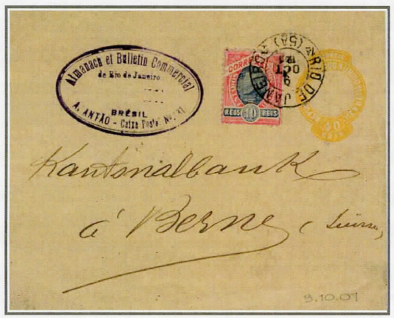 Almanach et Bulletin Commercial
de Rio de Janeiro
BRÉSIL
A. ANTÃO - Caixa Postal
CORREIO
REIS 10 REIS
RIO DE JANEIRO
9
OCT
Kantonalbank
à Berne (Suisse)
9.10.01